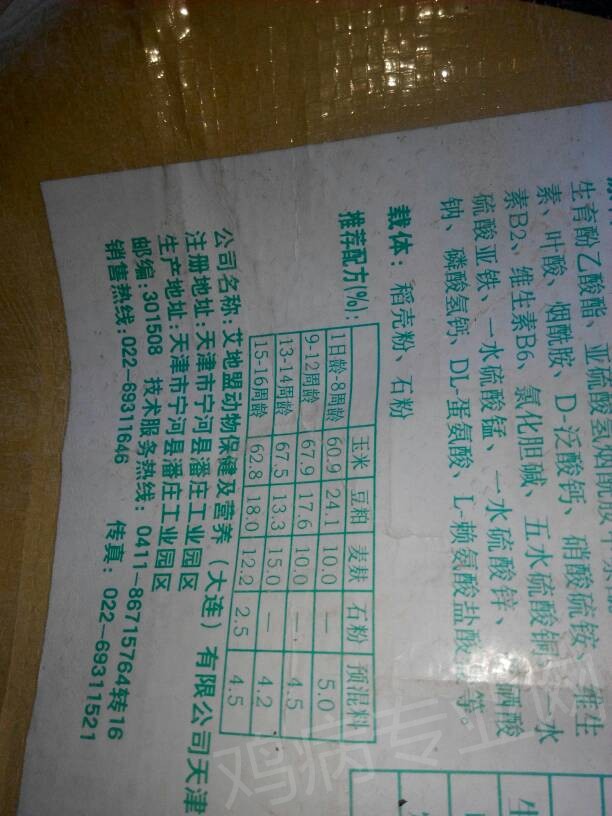 生育酚乙酸酯、亚硫酸氢烟酰胺
素、叶酸、烟酰胺、D-泛酸钙、硝酸硫铵、维生
素B2、维生素B6、氯化胆碱、五水硫酸铜、一水
硫酸亚铁、一水硫酸锰、一水硫酸锌、硒酸
钠、磷酸氢钙、DL-蛋氨酸、L-赖氨酸盐酸等。
载体：稻壳粉、石粉
推荐配方(%)：
玉米 豆粕 麦麸 石粉 预混料
1日龄-8周龄 60.9 24.1 10.0 — 5.0
9-12周龄 67.9 17.6 10.0 — 4.5
13-14周龄 67.5 13.3 15.0 — 4.2
15-16周龄 62.8 18.0 12.2 2.5 4.5
公司名称：艾地盟动物保健及营养（大连）有限公司天津
注册地址：天津市宁河县潘庄工业园区
生产地址：天津市宁河县潘庄工业园区
邮编：301508 技术服务热线：0411-86715764转16
销售热线：022-69311646 传真：022-69311521
鸡病专业网